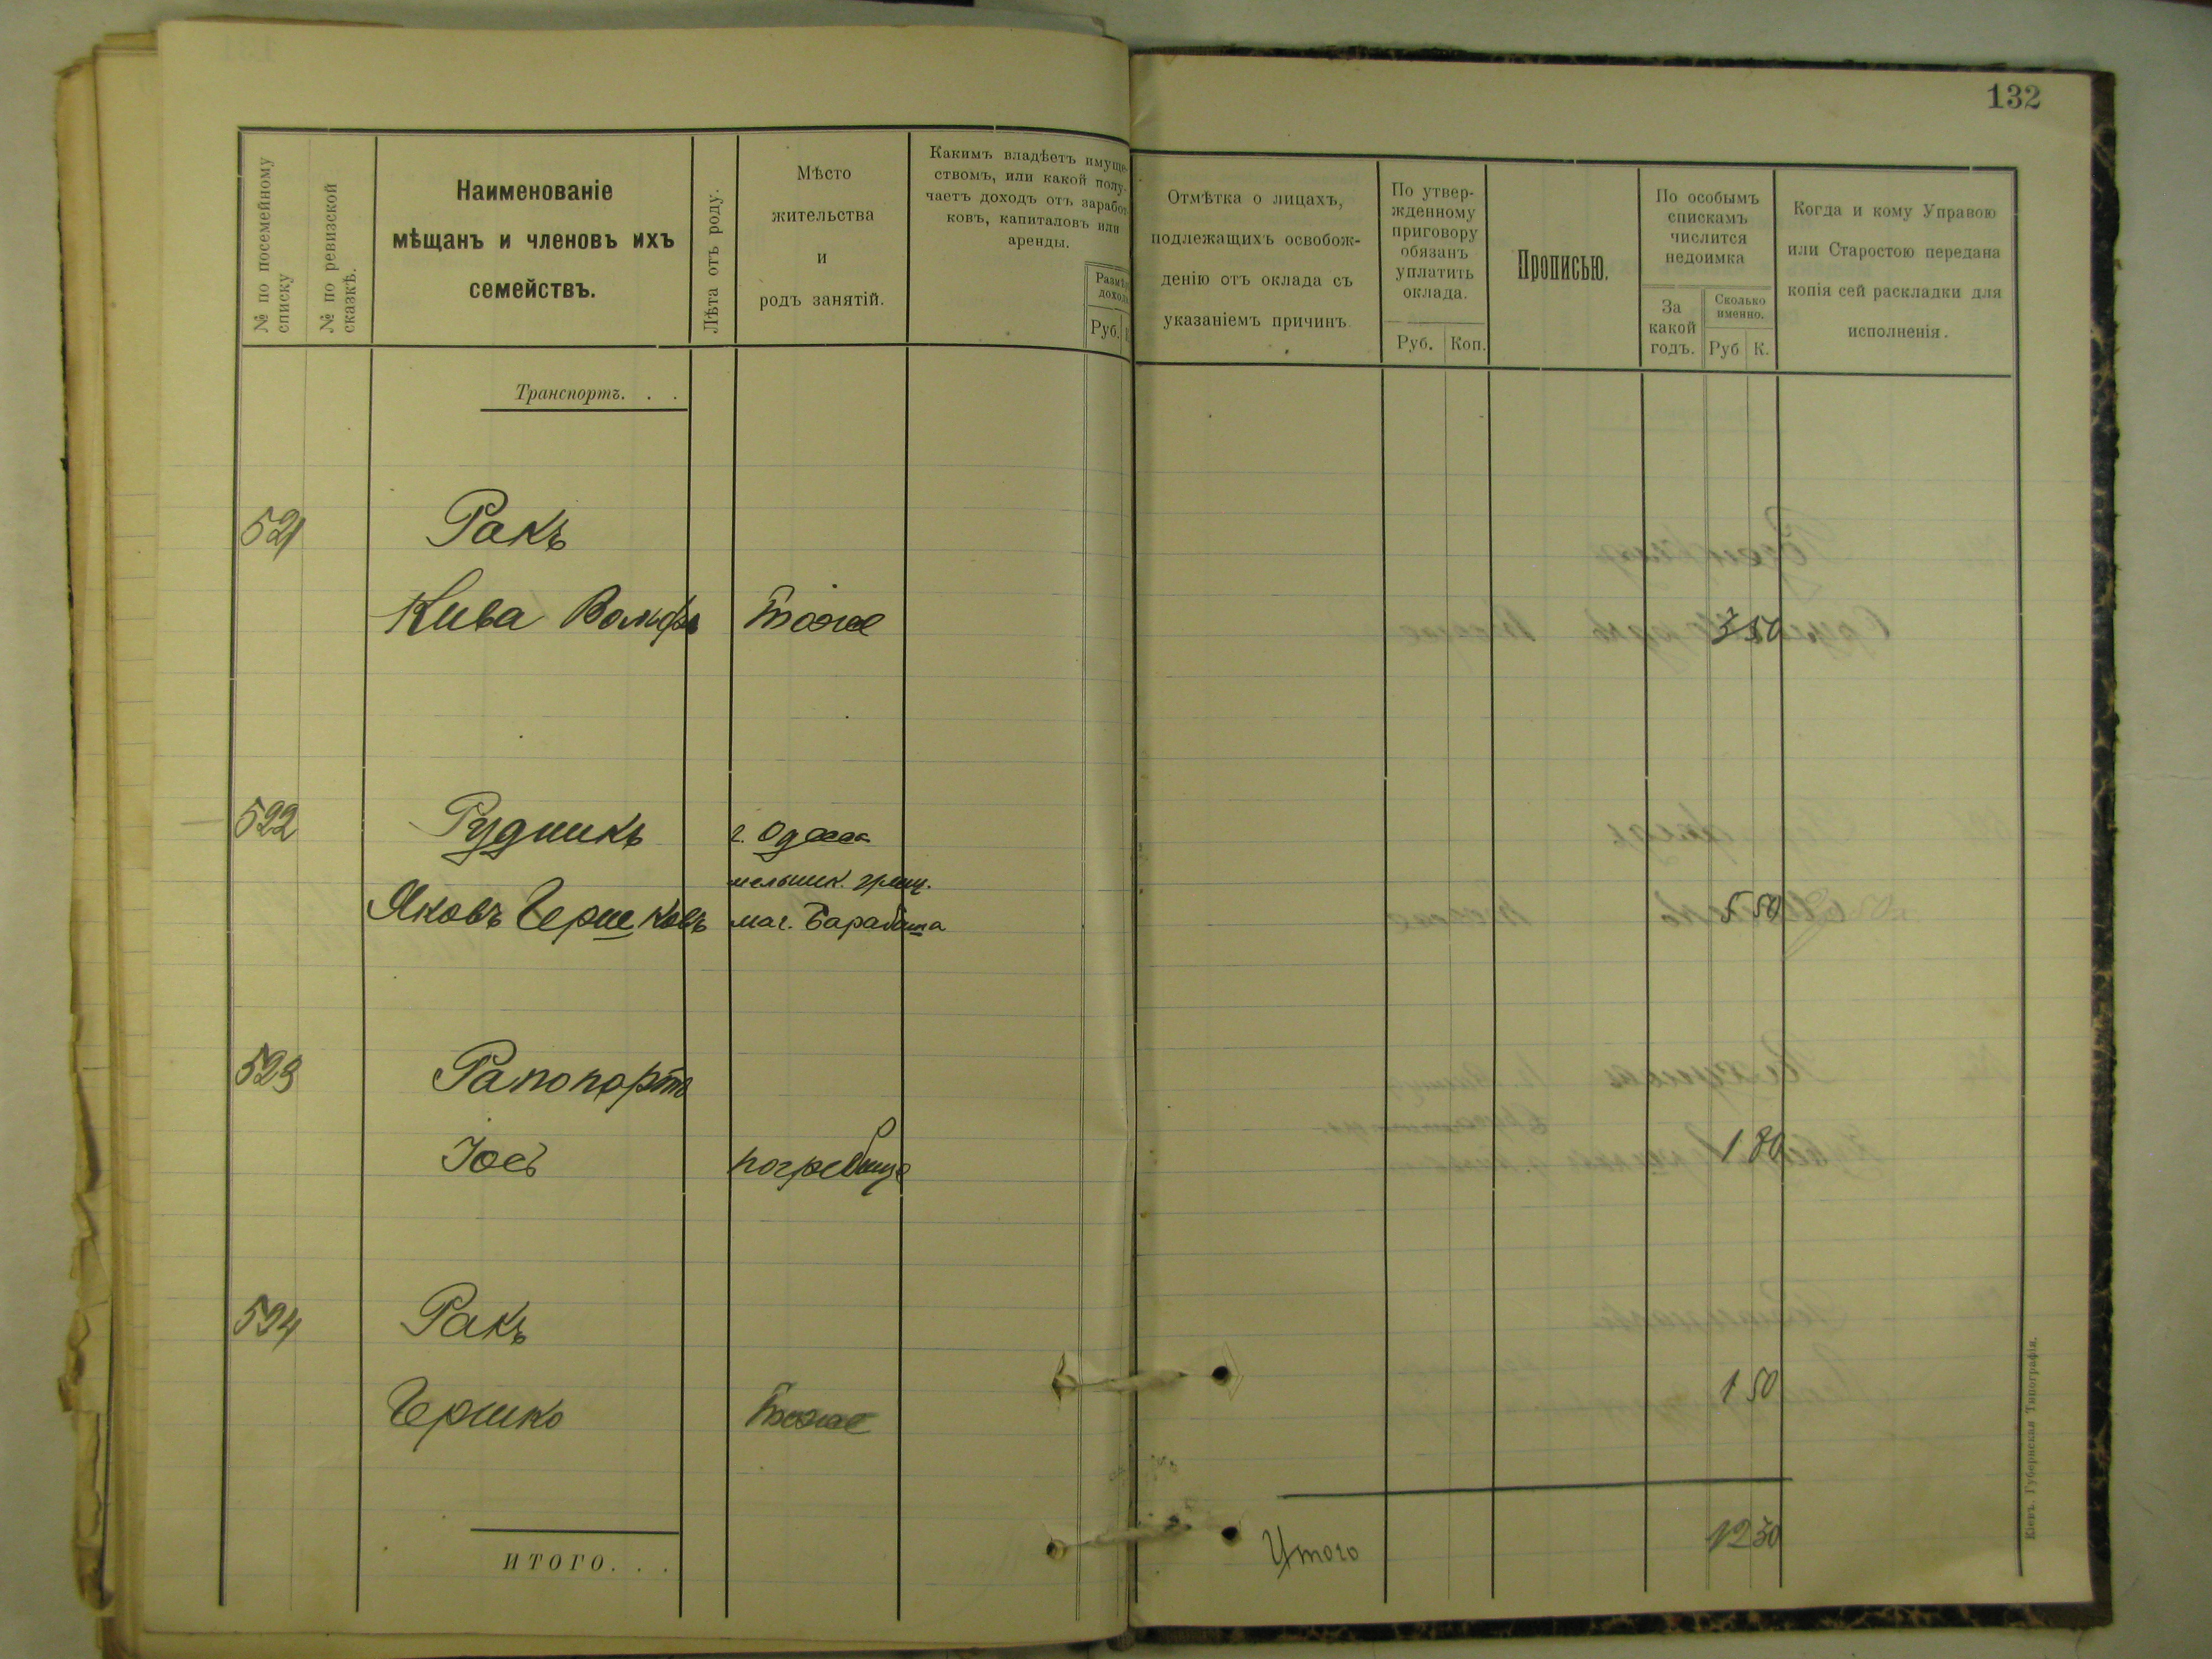 132
№ по посемейному списку
№ по ревизской сказкѣ.
Наименованіе
мѣщанъ и членовъ ихъ
семействъ.
Лѣта отъ роду.
Мѣсто
жительства
и
родъ занятій.
Какимъ владѣетъ имуще-
ствомъ, или какой полу-
чаетъ доходъ отъ заработ-
ковъ, капиталовъ или
аренды.
Руб.
Отмѣтка о лицахъ,
подлежащихъ освобож-
денію отъ оклада съ
указаніемъ причинъ
По утвер-
жденному
приговору
обязанъ
уплатить
оклада.
Руб. Коп.
Прописью.
По особымъ
спискамъ
числится
недоимка
За
какой
годъ.
Сколько
именно.
Руб К.
Когда и кому Управою
или Старостою передана
копія сей раскладки для
исполненія.
Транспортъ. . .
521 Ракъ
Кива Вольфъ Тоже 3 50
522 Рудникъ г. Одесса
мельник.
Яковъ Гершковъ маг. 5 50
523 Рапопортъ
Іосъ погребище 1 80
524 Ракъ
Гершко Тоже 1 50
ИТОГО. . .
Итого 12 30
Кіевъ. Губернская Типографія.